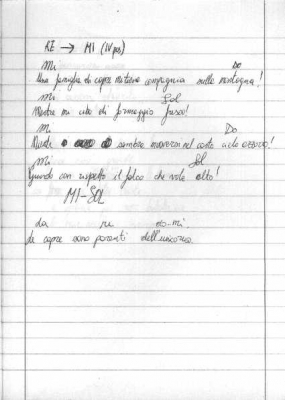 RE → MI (IV pos)
mi Do
Una famiglia di capre mi tiene compagnia sulla montagna!
mi Sol
Mentre mi cibo di formaggio fresco!
mi Do
Niente sembra muoversi nel cielo azzurro!
mi Sol
Guardo con rispetto il falco che vola alto!
MI-SOL
La re do-mi
Le capre sono parenti dell'unicorno.